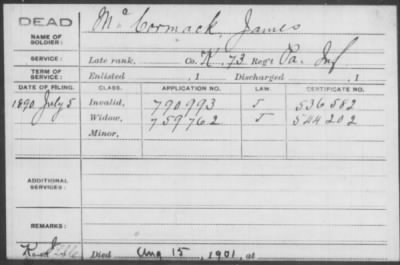 DEAD
NAME OF SOLDIER: McCormack, James
SERVICE: Late rank, Co. K, 73 Reg't Pa. Inf
TERM OF SERVICE: Enlisted , 1 Discharged , 1
DATE OF FILING. CLASS. APPLICATION NO. LAW. CERTIFICATE NO.
1890 July 5 Invalid, 790,993 J 536582
Widow, 759762 J 544202
Minor,
ADDITIONAL SERVICES:
REMARKS:
Died Aug 15, 1901, at